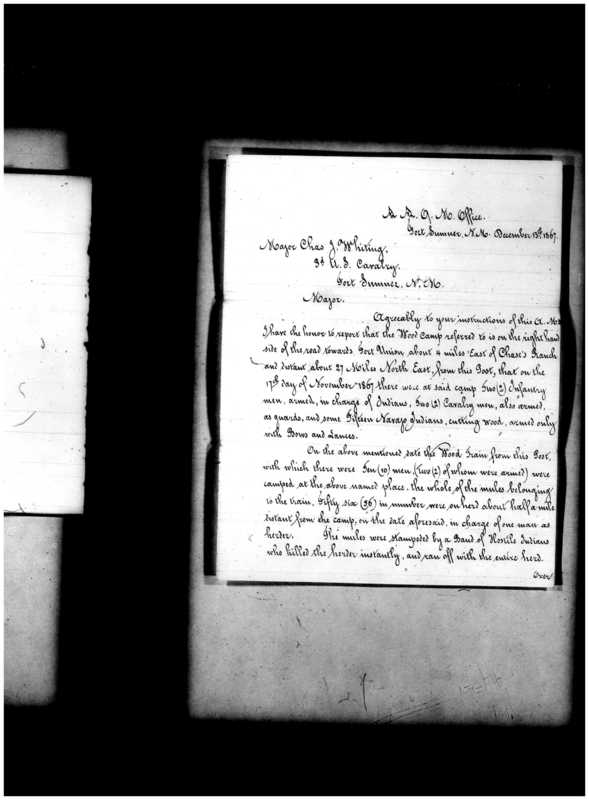 A. A. Q. M. Office.
Fort Sumner, N.M. December 13th 1867.
Major Chas J. Whiting,
3d U.S. Cavalry.
Fort Sumner, N.M.
Major.
Agreeably to your instructions of this A.M.
I have the honor to report that the Wood Camp referred to is on the right hand
side of the road towards Fort Union about 4 miles East of Chase's Ranch
and distant about 27 Miles North East, from this Post, that on the
17th day of November 1867 there were at said camp Two (2) Infantry
men, armed, in charge of Indians, Two (2) Cavalry men, also armed,
as guards, and some Fifteen Navajo Indians, cutting wood, armed only
with Bows and Lances.
On the above mentioned date the Wood Train from this Post,
with which there were Ten (10) men, (Two (2) of whom were armed) were
camped at the above named place, the whole of the mules belonging
to the train, Fifty six (56) in number were, on herd about half a mile
distant from the camp, on the date aforesaid, in charge of one man as
herder. The mules were stampeded by a Band of Hostile Indians
who killed the herder instantly, and ran off with the entire herd.
Over